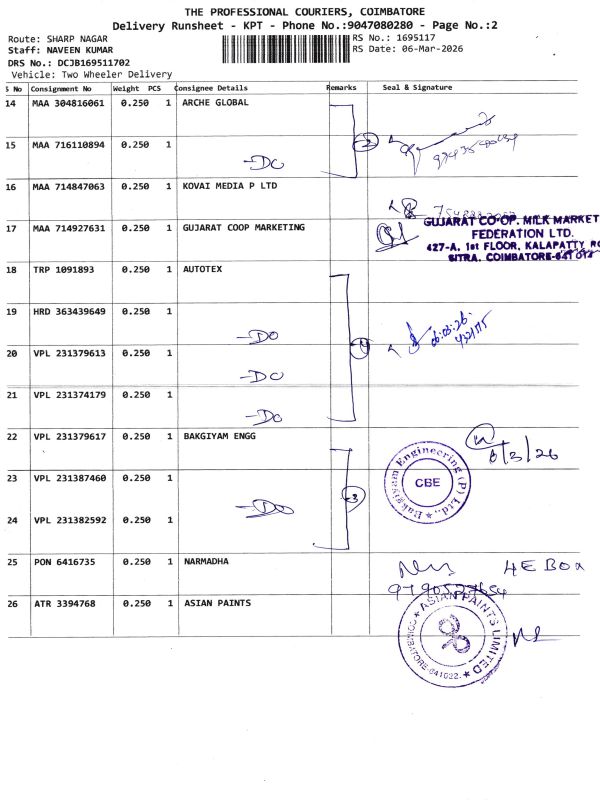 THE PROFESSIONAL COURIERS, COIMBATORE
Delivery Runsheet - KPT - Phone No.:9047080280 - Page No.:2
Route: SHARP NAGAR
RS No.: 1695117
Staff: NAVEEN KUMAR
RS Date: 06-Mar-2026
DRS No.: DCJB169511702
Vehicle: Two Wheeler Delivery
S No Consignment No Weight PCS Consignee Details Remarks Seal & Signature
14 MAA 304816061 0.250 1 ARCHE GLOBAL
2
15 MAA 716110894 0.250 1
-DO
16 MAA 714847063 0.250 1 KOVAI MEDIA P LTD
17 MAA 714927631 0.250 1 GUJARAT COOP MARKETING
GUJARAT CO-OP. MILK MARKET
FEDERATION LTD.
427-A, 1st FLOOR, KALAPATTY RO
SITRA, COIMBATORE-641 014
18 TRP 1091893 0.250 1 AUTOTEX
19 HRD 363439649 0.250 1
-DO
06.03.26
4
20 VPL 231379613 0.250 1
-DO
21 VPL 231374179 0.250 1
-DO
22 VPL 231379617 0.250 1 BAKGIYAM ENGG
6/3/26
Bakgiyam Engineering (P) Ltd.,
CBE
23 VPL 231387460 0.250 1
3
-DO
24 VPL 231382592 0.250 1
25 PON 6416735 0.250 1 NARMADHA
26 ATR 3394768 0.250 1 ASIAN PAINTS
ASIAN PAINTS LIMITED
COIMBATORE-641022.